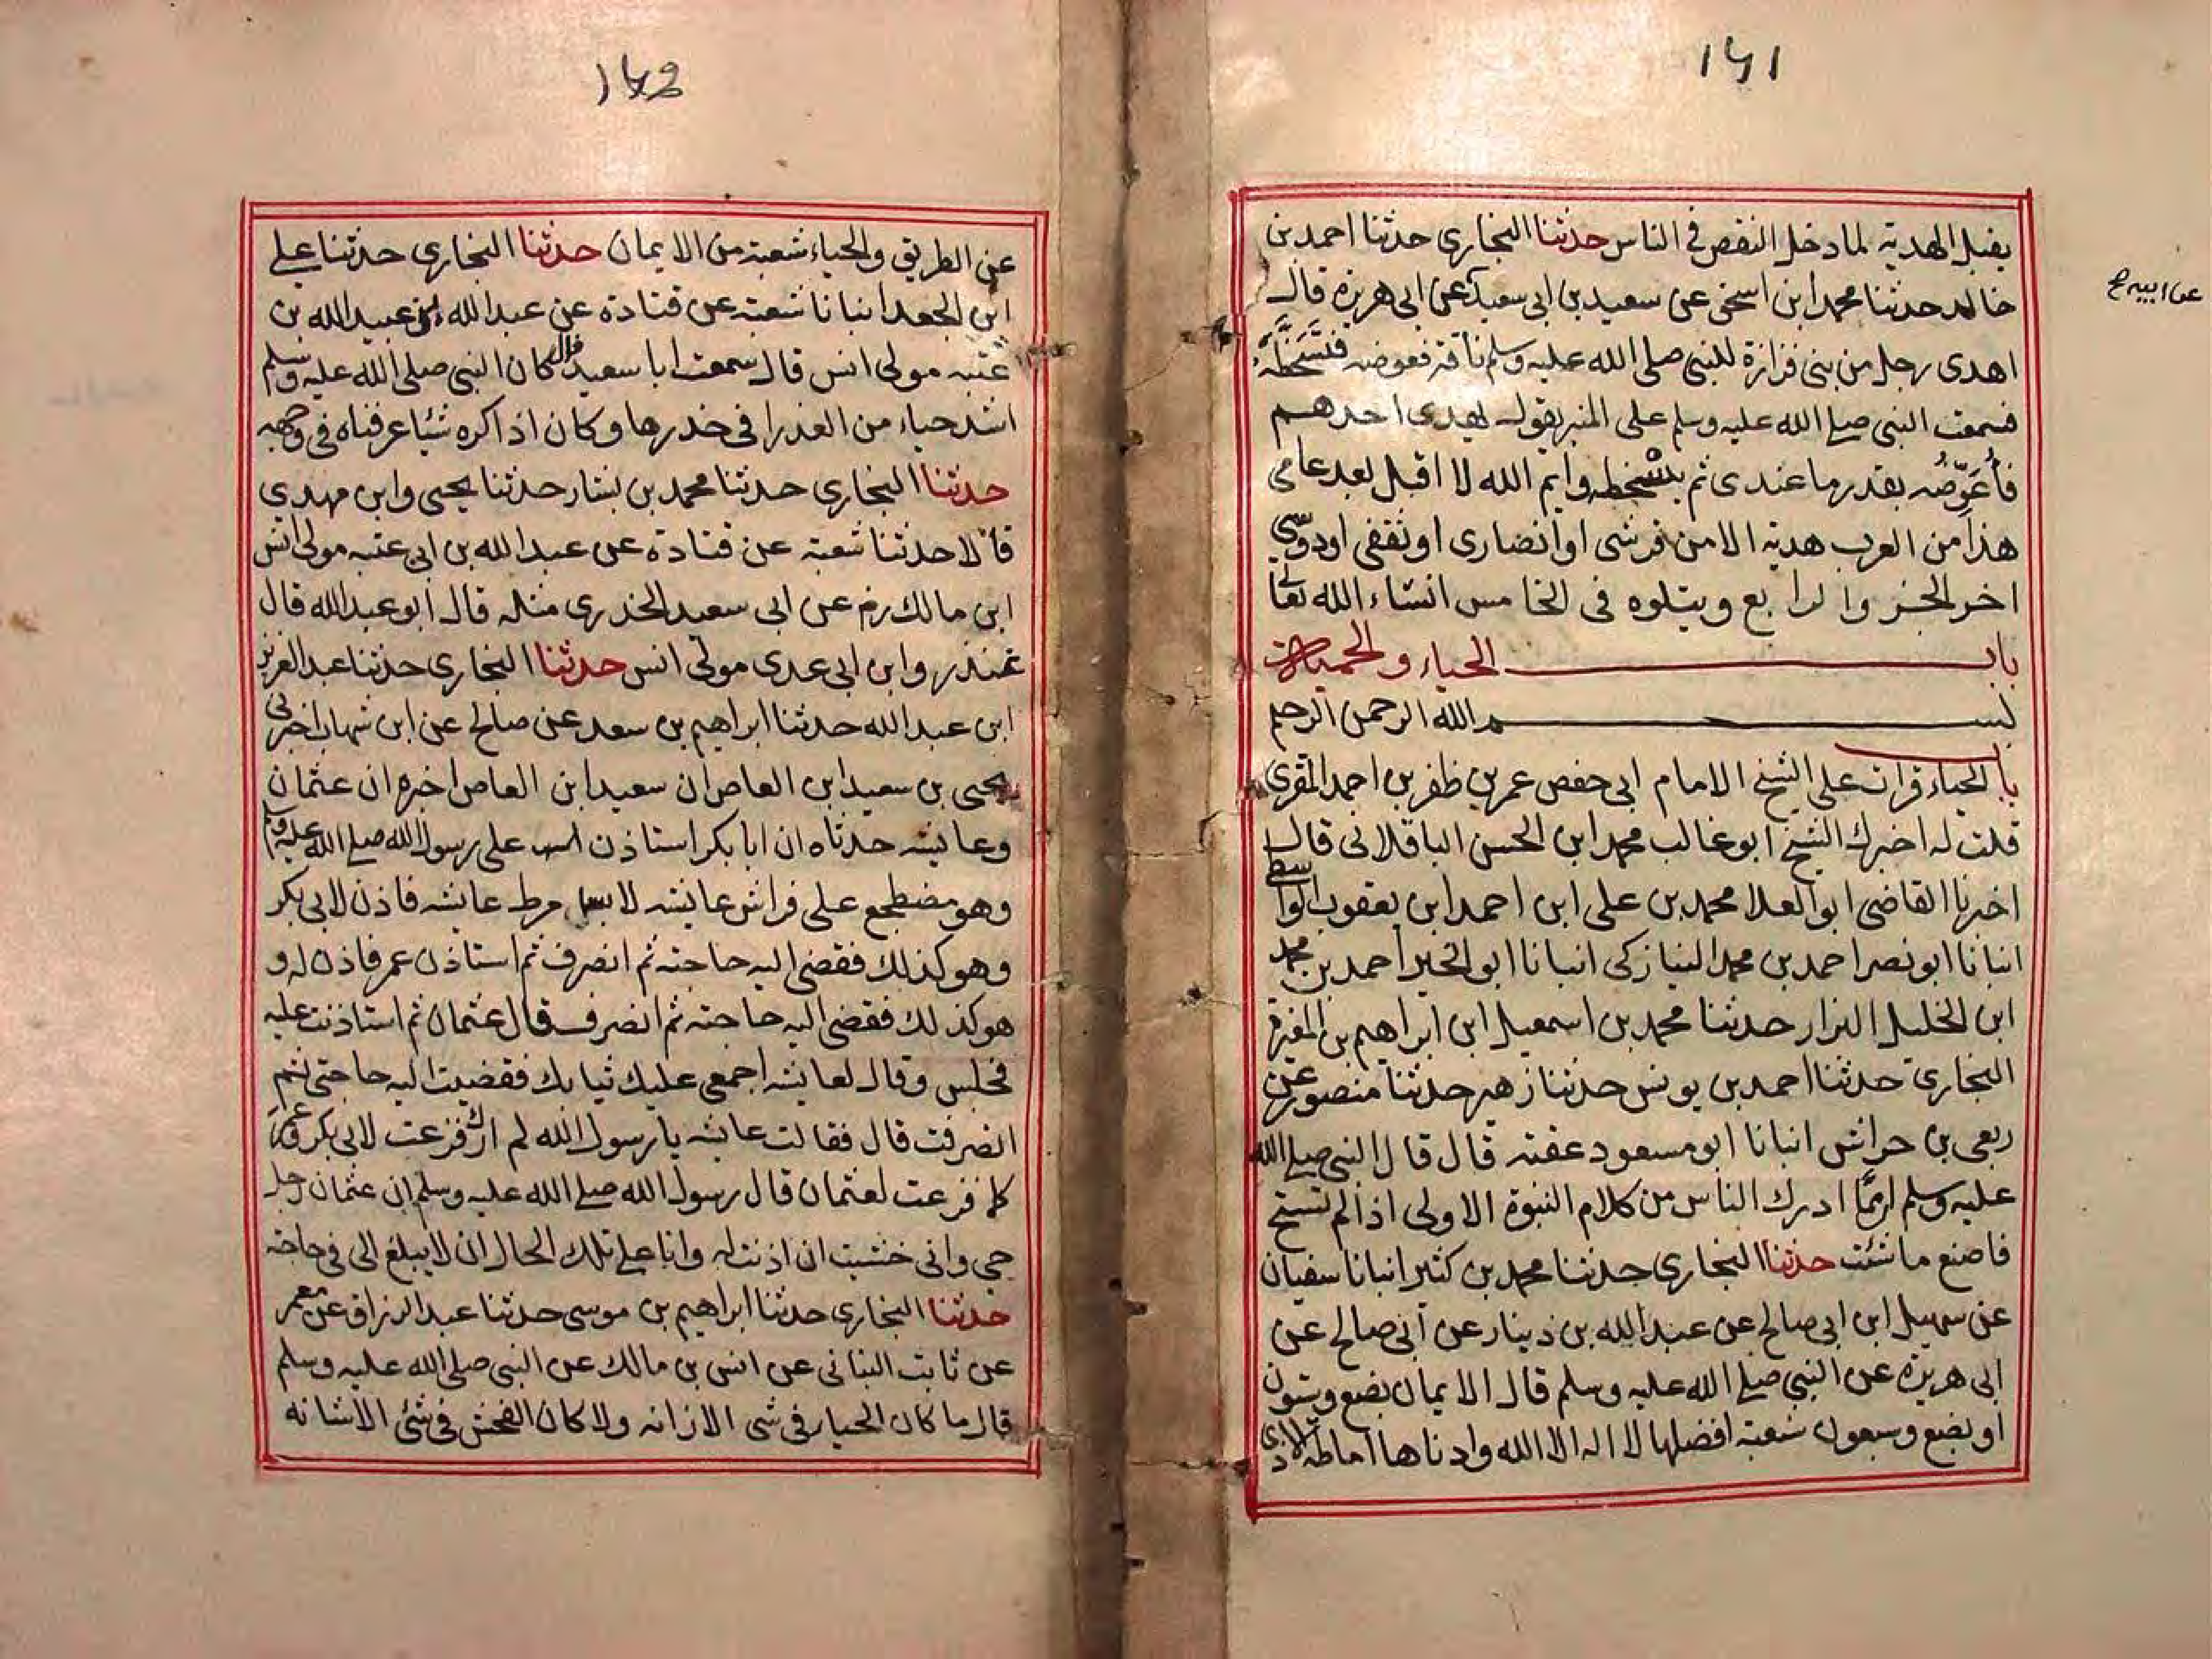 ١٤١
يقبل الهدية لما دخل النقص في الناس حدثنا البخاري حدثنا احمد بن
خالد حدثنا محمد ابن اسحق عن سعيد بن ابى سعيد عن ابى هريرة قال
عن ابيه
اهدى رجل من بنى فزازة للنبى صلى الله عليه وسلم ناقة فعوضه فتسخطه
فسمعت النبى صلى الله عليه وسلم على المنبر يقول يهدى احدهم
فأعوّضُه بقدر ما عندى ثم يسخطه وايم الله لا اقبل بعد عامى
هذا من العرب هدية الا من قرشى او انصارى او ثقفى او دوسى
اخر الجزء الرابع ويتلوه فى الخامس انشاء الله تعالى
باب الحياء و
بسم الله الرحمن الرحيم
باب الحياء قرات على الشيخ الامام ابى حفص عمر بن ظفر بن احمد المقرى
قلت له اخبرك الشيخ ابو غالب محمد ابن الحسن الباقلانى قال
اخبرنا القاضى ابو العلا محمد بن على ابن احمد ابن يعقوب الواسطى
انبانا ابو نصر احمد بن محمد النيازكى انبانا ابو الخير احمد بن محمد
ابن الخليل البزار حدثنا محمد بن اسمعيل ابن ابراهيم بن المغيرة
البخارى حدثنا احمد بن يونس حدثنا زهير حدثنا منصور عن
ربعى بن حراش انبانا ابو مسعود عقبة قال قال النبى صلى الله
عليه وسلم ان مما ادرك الناس من كلام النبوة الاولى اذا لم تستح
فاصنع ما شئت حدثنا البخارى حدثنا محمد بن كثير انبانا سفيان
عن سهيل ابن ابى صالح عن عبد الله بن دينار عن أبى صالح عن
ابى هريرة عن النبى صلى الله عليه وسلم قال الايمان بضع وستون
او بضع وسبعون شعبة افضلها لا اله الا الله وادناها اماطة الاذى
١٤٢
عن الطريق والحياء شعبة من الايمان حدثنا البخارى حدثنا على
ابن الجعد انبانا شعبة عن قتادة عن عبد الله بن عبيد الله بن
عتبه مولى انس قال سمعت ابا سعيد قال كان النبى صلى الله عليه وسلم
اشد حياء من العذرا فى خدرها وكان اذا كره شيئا عرفناه فى وجهه
حدثنا البخارى حدثنا محمد بن بشار حدثنا يحيى وابن مهدى
قالا حدثنا شعبة عن قتادة عن عبد الله بن ابى عتبه مولى انس
ابن مالك رض عن ابى سعيد الخدرى مثله قال ابو عبد الله قال
غندر وابن ابى عدى مولى انس حدثنا البخارى حدثنا عبد العزيز
ابن عبد الله حدثنا ابراهيم بن سعد عن صالح عن ابن شهاب اخبرنى
يحيى بن سعيد ابن العاص ان سعيد ابن العاص اخبره ان عثمان
وعايشه حدثاه ان ابا بكر استاذن على رسول الله صلى الله عليه وسلم
وهو مضطجع على فراش عايشه لابس مرط عايشه فاذن لابى بكر
وهو كذلك فقضى اليه حاجته ثم انصرف ثم استاذن عمر فاذن له و
هو كذلك فقضى اليه حاجته ثم انصرف قال عثمان ثم استاذنت عليه
فجلس وقال لعايشه اجمعى عليك ثيابك فقضيت اليه حاجتى ثم
انصرفت قال فقالت عايشه يا رسول الله لم ارك فزعت لابى بكر وعمر
كما فزعت لعثمان قال رسول الله صلى الله عليه وسلم ان عثمان رجل
حيى وانى خشيت ان اذنت له وانا على تلك الحال ان لا يبلغ الى فى حاجته
حدثنا البخارى حدثنا ابراهيم بن موسى حدثنا عبد الرزاق عن معمر
عن ثابت البنانى عن انس بن مالك عن النبى صلى الله عليه وسلم
قال ما كان الحياء فى شى الا زانه ولا كان الفحش فى شئى الا شانه